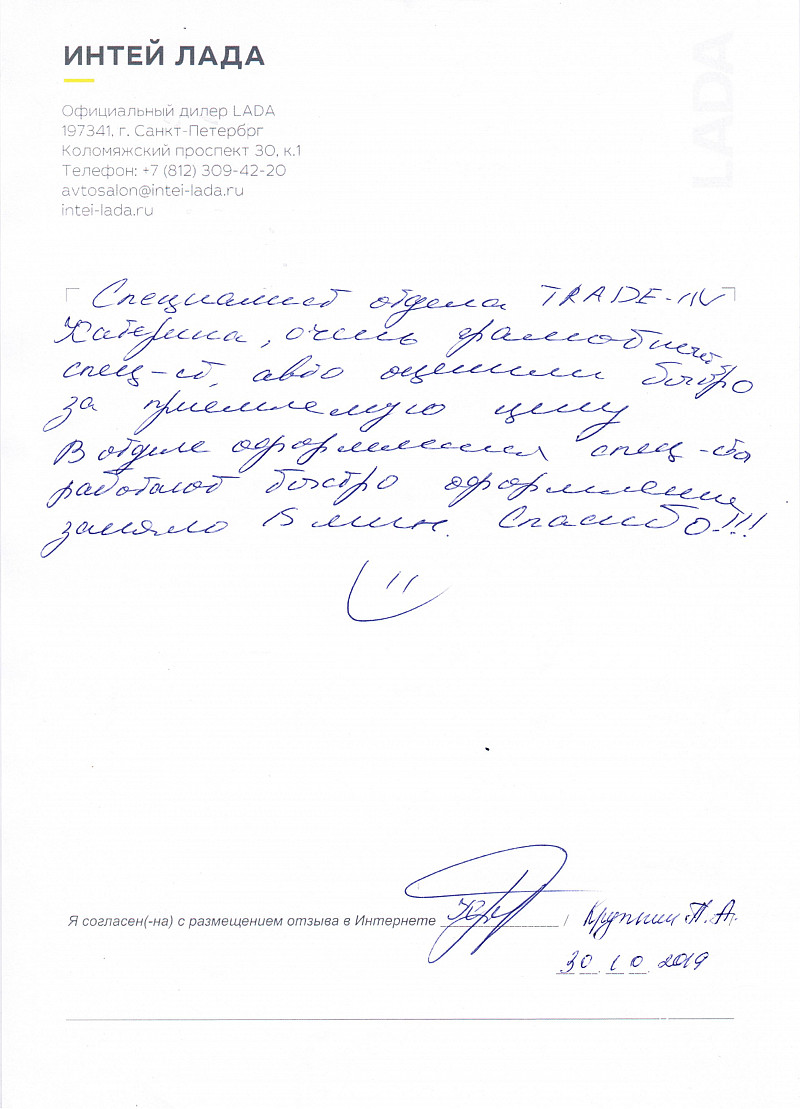 ИНТЕЙ ЛАДА
LADA
Официальный дилер LADA
197341, г. Санкт-Петербрг
Коломяжский проспект 30, к.1
Телефон: +7 (812) 309-42-20
avtosalon@intei-lada.ru
intei-lada.ru
Специалист отдела TRADE-IN
Катерина, очень грамотный
спец-ст, авто оценили быстро
за приемлемую цену
В отделе оформления спец-ты
работают быстро оформление
заняло 15 мин. Спасибо!!!
Я согласен(-на) с размещением отзыва в Интернете / Крупнин П.А.
30.10.2019